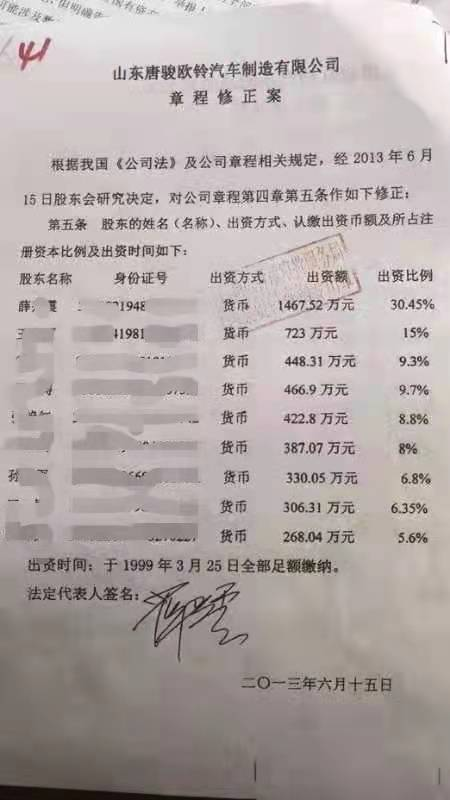 41
山东唐骏欧铃汽车制造有限公司
章程修正案
根据我国《公司法》及公司章程相关规定，经 2013 年 6 月
15 日股东会研究决定，对公司章程第四章第五条作如下修正：
第五条 股东的姓名（名称）、出资方式、认缴出资币额及所占注
册资本比例及出资时间如下：
股东名称 身份证号 出资方式 出资额 出资比例
薛 货币 1467.52 万元 30.45%
货币 723 万元 15%
货币 448.31 万元 9.3%
货币 466.9 万元 9.7%
货币 422.8 万元 8.8%
货币 387.07 万元 8%
孙 货币 330.05 万元 6.8%
货币 306.31 万元 6.35%
货币 268.04 万元 5.6%
出资时间：于 1999 年 3 月 25 日全部足额缴纳。
法定代表人签名：
二〇一三年六月十五日